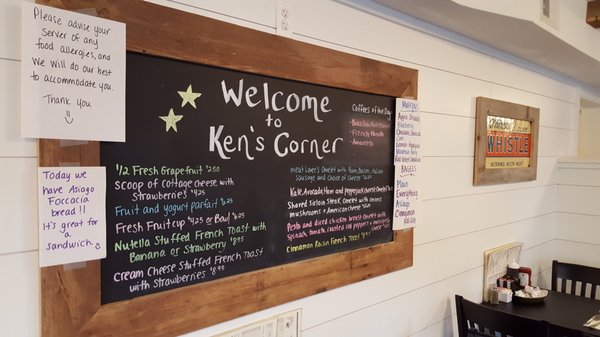 Please advise your
Server of any
food allergies, and
We will do our best
to accommodate you.
Thank you
Today we
have Asiago
Foccacia
bread!!
It's great for
a sandwich.
Welcome
to
Ken's Corner
1/2 Fresh Grapefruit $2.50
scoop of cottage cheese with
strawberries $4.25
Fruit and yogurt parfait
Fresh Fruit cup $4.25 or Bowl
Nutella Stuffed French Toast with
Banana or Strawberry $8.95
cream Cheese Stuffed French Toast
with Strawberries $8.95
Coffees of the Day
French Vanilla
Amaretto
Meat Lover's Omelet with Ham, Bacon,
Sausage and choice of Cheese
Kale, Avocado, Ham and pepperjack cheese
Shaved Sirloin Steak omelet with onions
mushrooms + American cheese
Pesto and diced chicken breast omelet with
spinach, tomato, roasted red peppers +
Cheese
Cinnamon Raisin French Toast
MUFFINS
Corn
Bran
Blueberry
Chocolate
Chip
BAGELS
Plain
Everything
Asiago
Cinnamon
WHISTLE